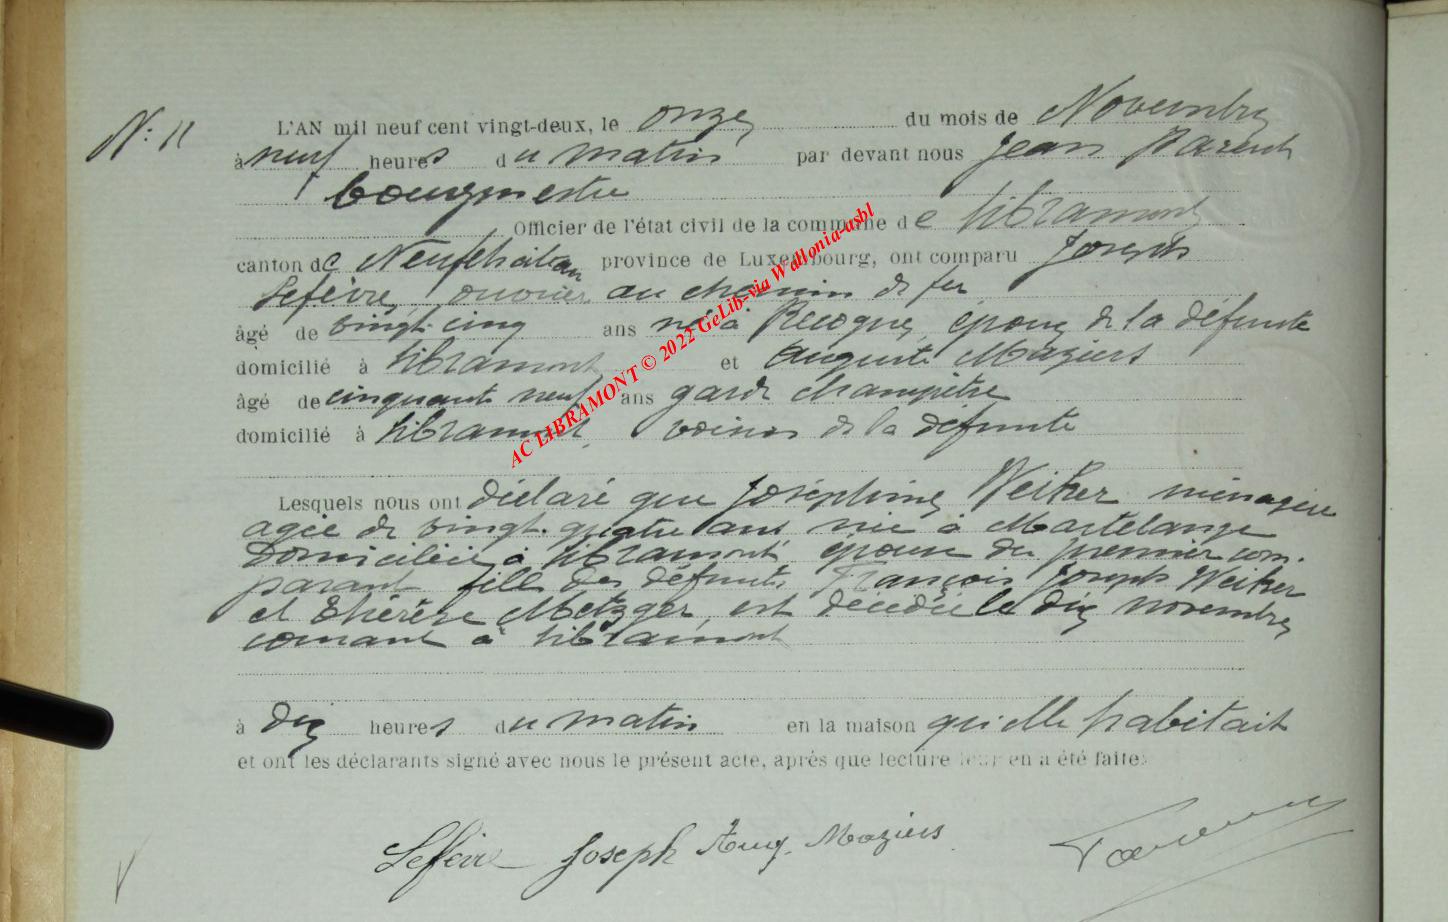 N: 11
L'AN mil neuf cent vingt-deux, le onze du mois de Novembre
à neuf heures du matin par devant nous Jean Parent
bourgmestre
Officier de l'état civil de la commune de Libramont
canton de Neufchâteau province de Luxembourg, ont comparu Joseph
Lefèvre, ouvrier au chemin de fer
âgé de vingt-cinq ans né à Recogne, époux de la défunte
domicilié à Libramont et Auguste Maziers
âgé de cinquante neuf ans garde champêtre
domicilié à Libramont, voisin de la défunte
Lesquels nous ont déclaré que Joséphine Weiker ménagère
agée de vingt-quatre ans née à Martelange
domiciliée à Libramont épouse du premier com-
parant fille des défunts François Joseph Weiker
et Thérèse Metzger, est décédée le dix novembre
courant à Libramont
à dix heures du matin en la maison qu'elle habitait
et ont les déclarants signé avec nous le présent acte, après que lecture leur en a été faite.
Lefèvre Joseph Aug. Maziers Parent
AC LIBRAMONT © 2022 GeLib-via Wallonia-asbl